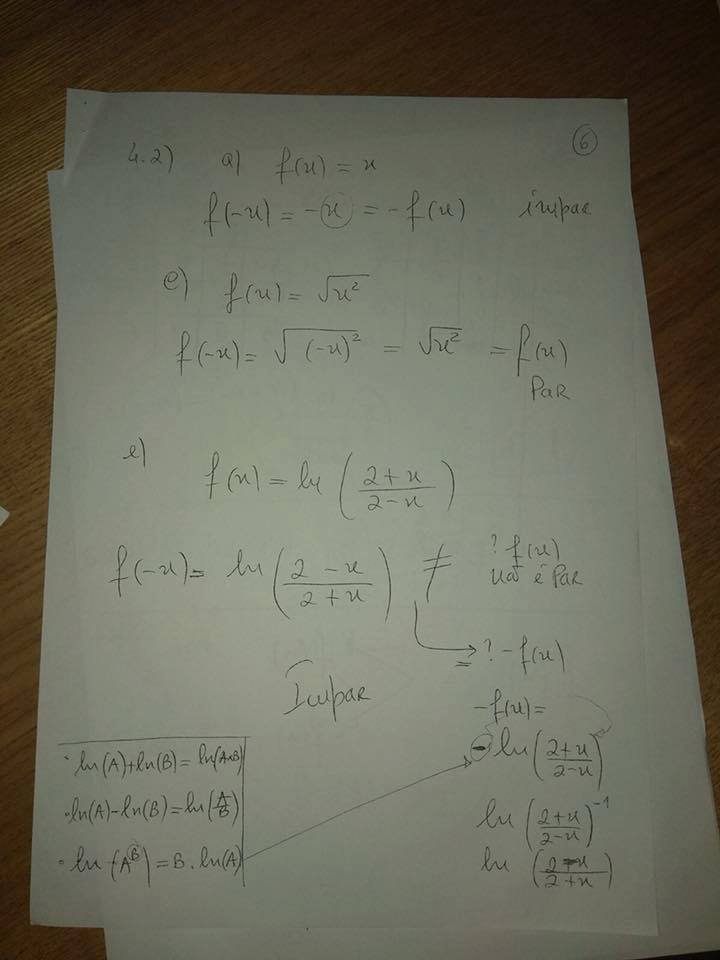 6
4.2) a) f(x) = x
f(-x) = -x = -f(x) impar
c) f(x) = √x²
f(-x) = √(-x)² = √x² = f(x)
PAR
e) f(x) = ln (2+x / 2-x)
f(-x) = ln (2-x / 2+x) ≠ ? f(x)
não é PAR
= ? -f(x)
Impar
-f(x) =
- ln (2+x / 2-x)
ln (2+x / 2-x)⁻¹
ln (2-x / 2+x)
· ln(A)+ln(B) = ln(A×B)
· ln(A)-ln(B) = ln(A/B)
· ln(A^B) = B . ln(A)